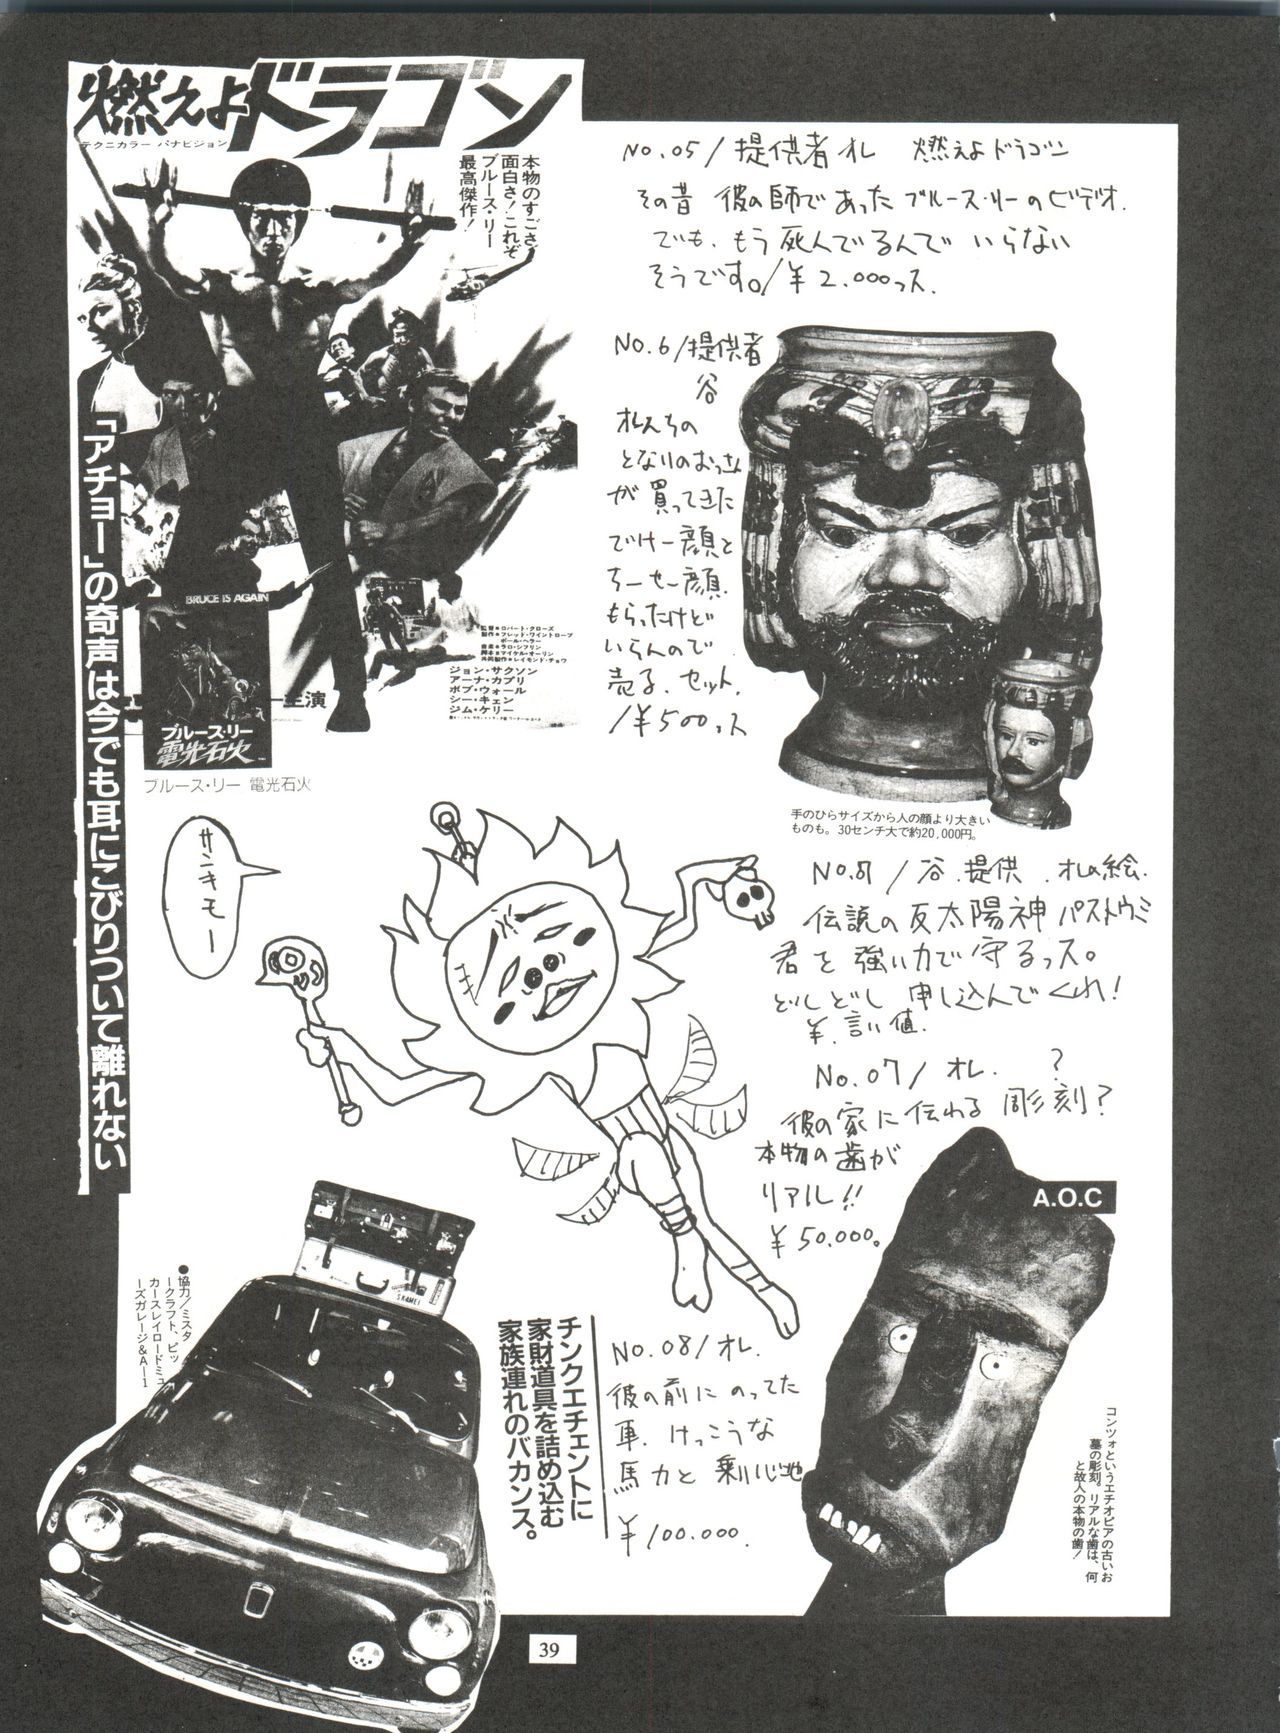 燃えよドラゴン
テクニカラー パナビジョン
本物のすごさ、
面白さ！これぞ
ブルース・リー
最高傑作！
「アチョー」の奇声は今でも耳にこびりついて離れない
BRUCE IS AGAIN
ブルース・リー
電光石火
主演
監督■ロバート・クローズ
製作■フレッド・ワイントローブ
ポール・ヘラー
音楽■ラロ・シフリン
脚本■マイケル・オーリン
共同製作■レイモンド・チョウ
ジョン・サクソン
アーナ・カプリ
ボブ・ウォール
シー・キェン
ジム・ケリー
ブルース・リー 電光石火
No.05/提供者オレ 燃えよドラゴン
その昔 彼の師であったブルース・リーのビデオ.
でも、もう死んでるんで いらない
そうです。/¥2.000っス.
No.6/提供者
谷
オレんちの
となりのおっさん
が買ってきた
でけー顔と
ちーせー顔.
もらったけど
いらんので
売る.セット.
/¥500っス
手のひらサイズから人の顔より大きい
ものも。30センチ大で約20,000円。
サンキモー
/谷.提供.オレの絵.
伝説の反太陽神パストウミ
君を強い力で守るっス。
どしどし申し込んでくれ!
¥.言い値.
No.07/オレ. ?
彼の家に伝わる彫刻?
本物の歯が
リアル!!
¥50.000。
A.O.C
コンツォというエチオピアの古いお
墓の彫刻。リアルな歯は、何
と故人の本物の歯！
●協力／ミスタ
ークラフト、ビッ
カースレイロードミュ
ーズガレージ&A－1
SKAMEI
チンクエチェントに
家財道具を詰め込む
家族連れのバカンス。
No.08/オレ.
彼の前にのってた
車.けっこうな
馬力と乗り心地
¥100.000.
39